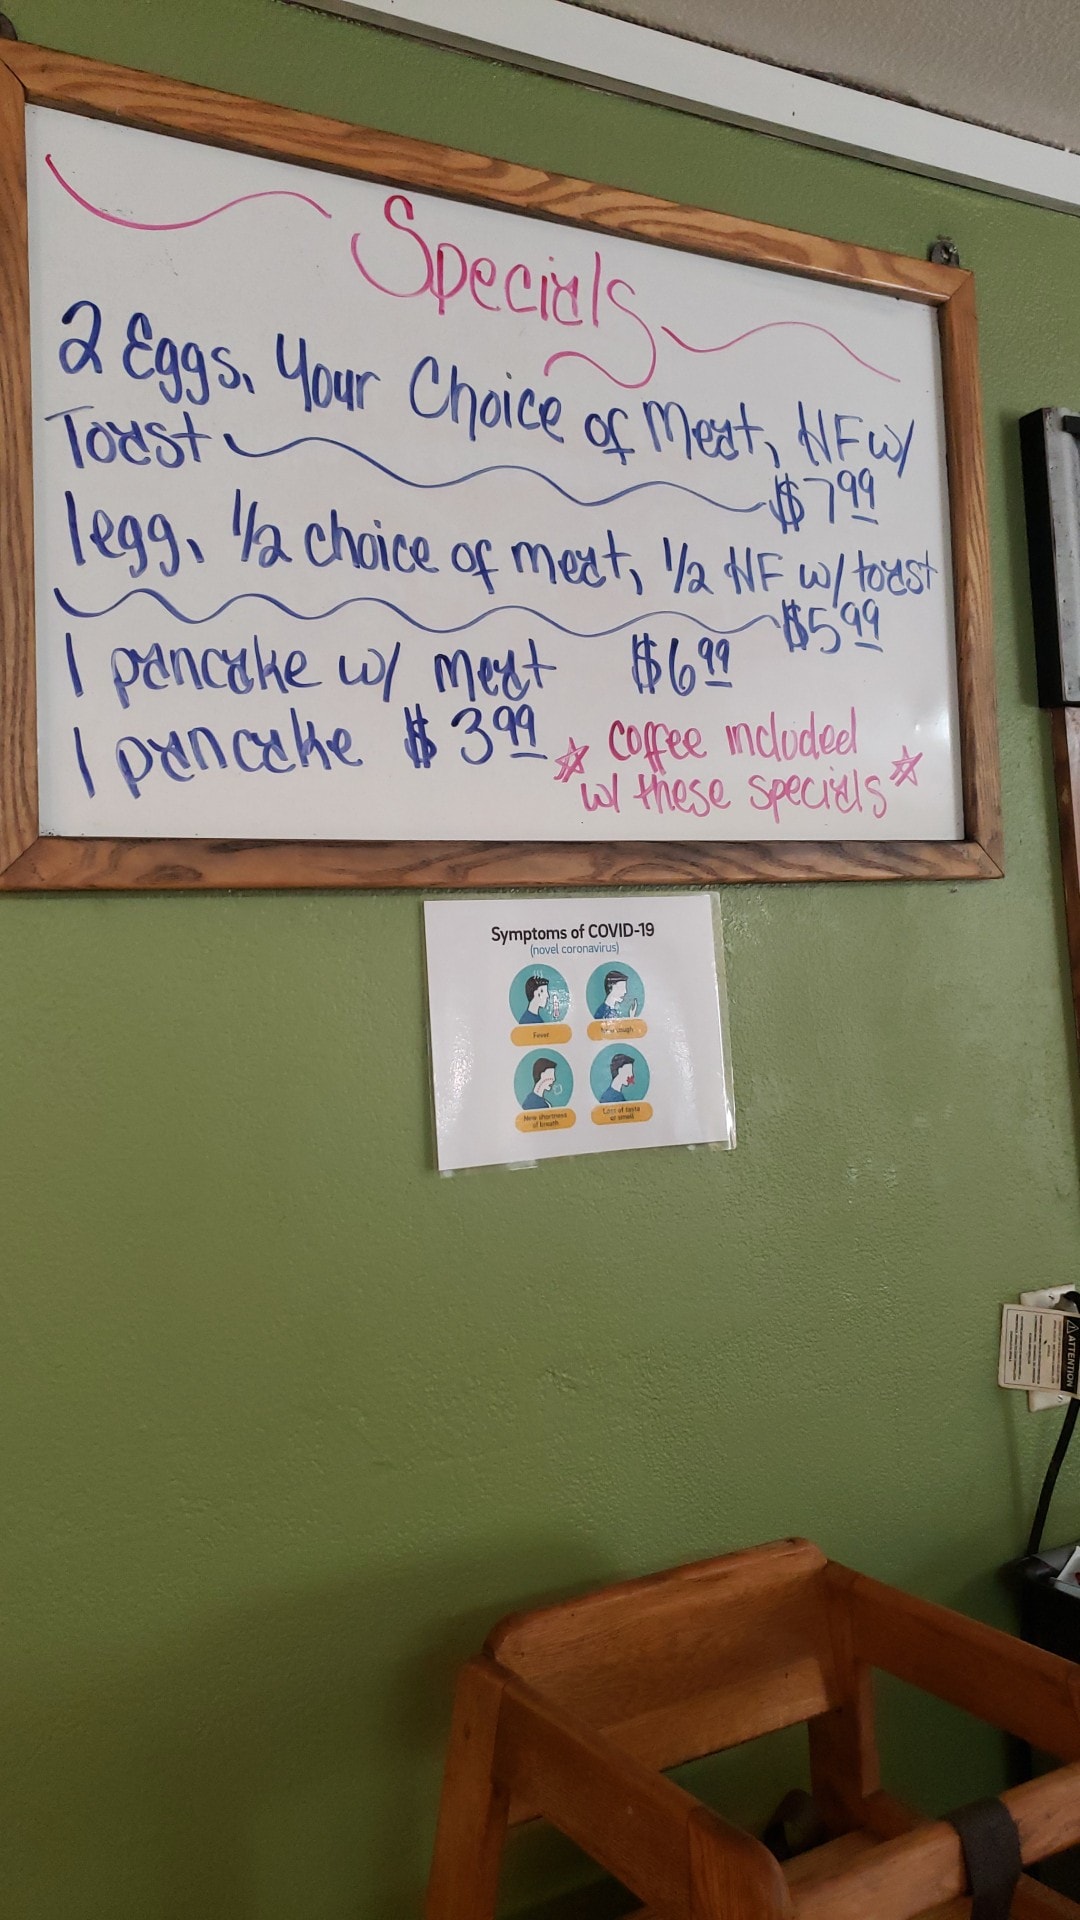 Specials
2 Eggs, Your Choice of Meat, HF w/
Toast $7.99
1 egg, 1/2 choice of meat, 1/2 HF w/ toast
$5.99
1 pancake w/ meat $6.99
1 pancake $3.99
coffee included
w/ these specials
Symptoms of COVID-19
(novel coronavirus)
Fever
New cough
New shortness
of breath
Loss of taste
or smell
ATTENTION